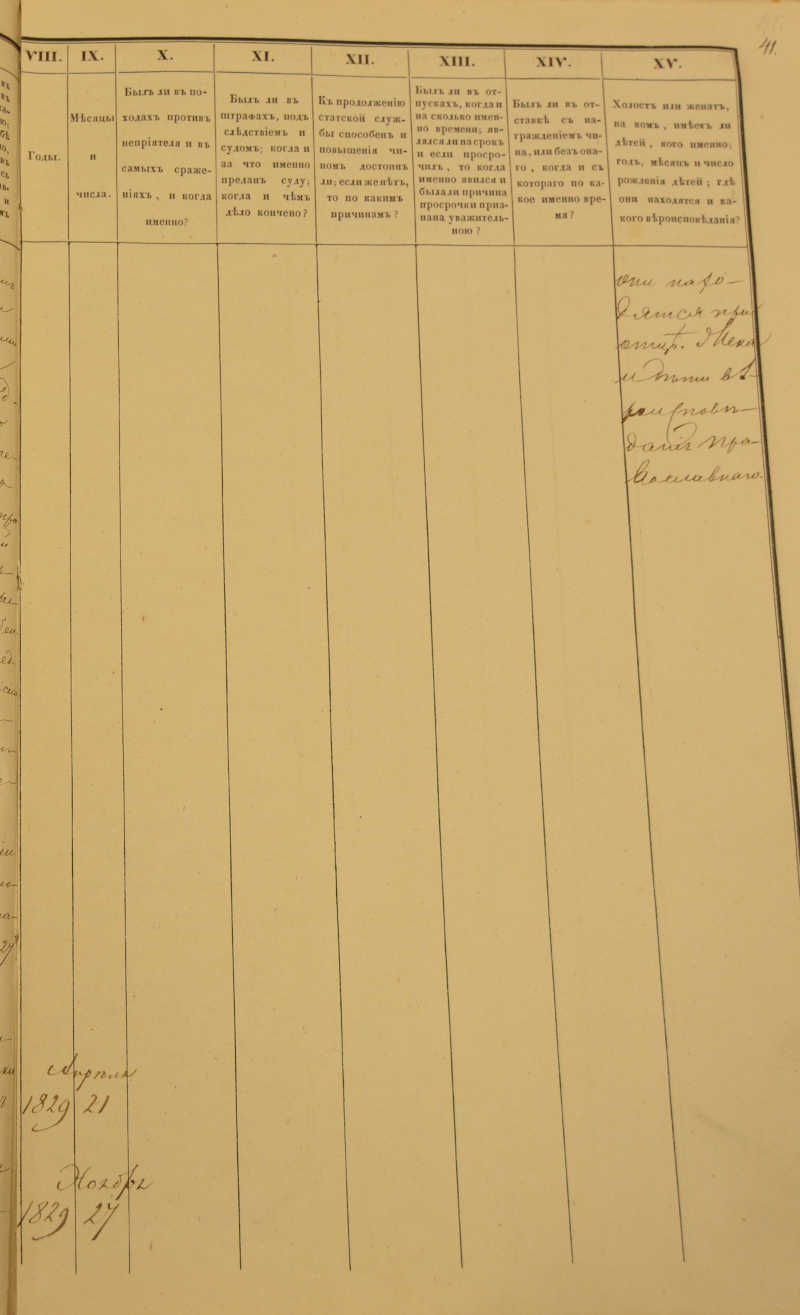 41.
VIII.
IX.
X.
XI.
XII.
XIII.
XIV.
XV.
Годы.
Мѣсяцы
и
числа.
Былъ ли въ по-
ходахъ противъ
непріятеля и въ
самыхъ сраже-
ніяхъ, и когда
именно?
Былъ ли въ
штрафахъ, подъ
слѣдствіемъ и
судомъ; когда и
за что именно
преданъ суду;
когда и чѣмъ
дѣло кончено?
Къ продолженію
статской служ-
бы способенъ и
повышенія чи-
номъ достоинъ
ли; если же нѣтъ,
то по какимъ
причинамъ?
Былъ ли въ от-
пускахъ, когда и
на сколько имен-
но времени; яв-
лялся ли на срокъ
и если просро-
чилъ, то когда
именно явился и
была ли причина
просрочки приз-
нана уважитель-
ною?
Былъ ли въ от-
ставкѣ съ на-
гражденіемъ чи-
на, или безъ она-
го, когда и съ
котораго по ка-
кое именно вре-
мя?
Холостъ или женатъ,
на комъ, имѣетъ ли
дѣтей, кого именно;
годъ, мѣсяцъ и число
рожденія дѣтей; гдѣ
они находятся и ка-
кого вѣроисповѣданія?
они нахо-
дятся при
отцѣ. Жена
и дѣти вѣ-
роисповѣ-
данія Пра-
вославнаго.
Апрѣля
1829 21
Ноября
1829 27